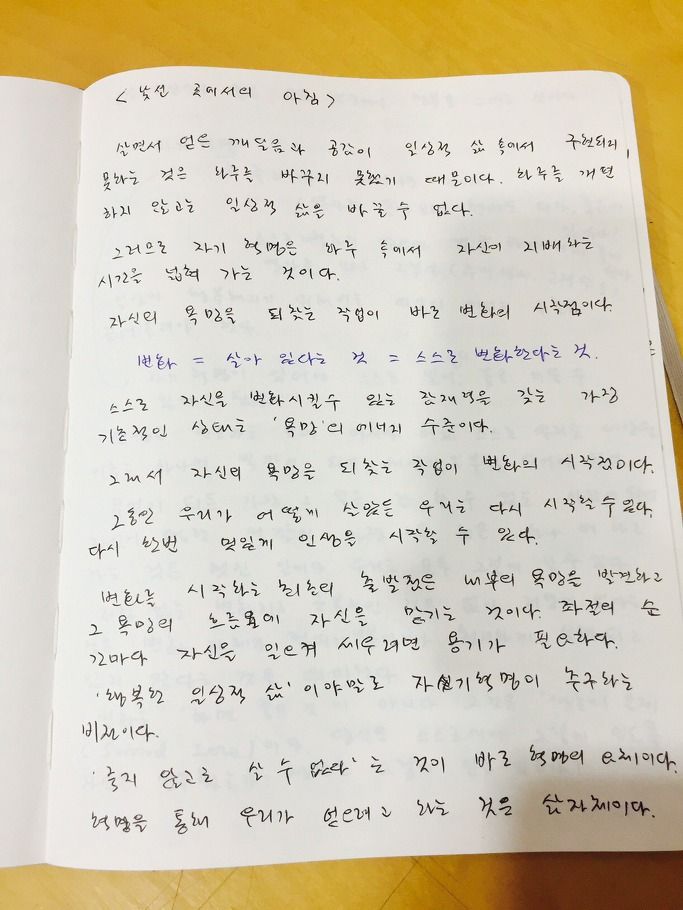 < 낯선 곳에서의 아침 >
살면서 얻은 깨달음과 공감이 일상적 삶 속에서 구현되지
못하는 것은 하루를 바꾸지 못했기 때문이다. 하루를 개편
하지 않고는 일상적 삶을 바꿀 수 없다.
그러므로 자기 혁명은 하루 속에서 자신이 지배하는
시간을 넓혀 가는 것이다.
자신의 욕망을 되찾는 작업이 바로 변화의 시작점이다.
변화 = 살아 있다는 것 = 스스로 변화한다는 것.
스스로 자신을 변화시킬 수 있는 잠재력을 갖는 가장
기초적인 상태는 '욕망'의 에너지 수준이다.
그래서 자신의 욕망을 되찾는 작업이 변화의 시작점이다.
그동안 우리가 어떻게 살았든 우리는 다시 시작할 수 있다.
다시 한번 멋있게 인생을 시작할 수 있다.
변화를 시작하는 최초의 출발점은 내부의 욕망을 발견하고
그 욕망의 흐름에 자신을 맡기는 것이다. 좌절의 순
간마다 자신을 일으켜 세우려면 용기가 필요하다.
'행복한 일상적 삶' 이야말로 자기혁명이 추구하는
비전이다.
'죽지 않고는 살 수 없다' 는 것이 바로 혁명의 요체이다.
혁명을 통해 우리가 얻으려고 하는 것은 삶 자체이다.